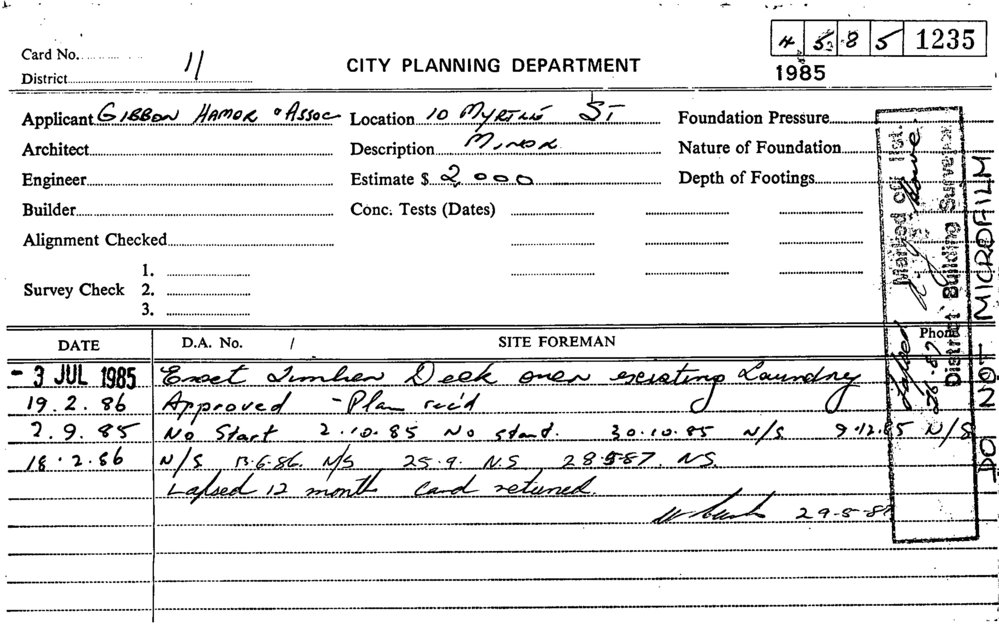 4 5 8 5 1235
Card No. 11
1985
District
CITY PLANNING DEPARTMENT
Applicant GIBBON HAMOR & ASSOC Location 10 MYRTLE ST Foundation Pressure
Architect Description MINOR Nature of Foundation
Engineer Estimate $ 2,000 Depth of Footings
Builder Conc. Tests (Dates)
Alignment Checked
1.
Survey Check 2.
3.
Phone
DATE D.A. No. / SITE FOREMAN
- 3 JUL 1985 Erect Timber Deck over existing Laundry
19.2.86 Approved - Plan rec'd
2.9.85 No Start 2.10.85 No start. 30.10.85 N/S 9.12.85 N/S
18.2.86 N/S 13.6.86. N/S 25.9. N.S 28.5.87. N.S.
Lapsed 12 month Card retuned.
29-5-87
Marked off list.
District Building Surveyor
DO NOT MICROFILM